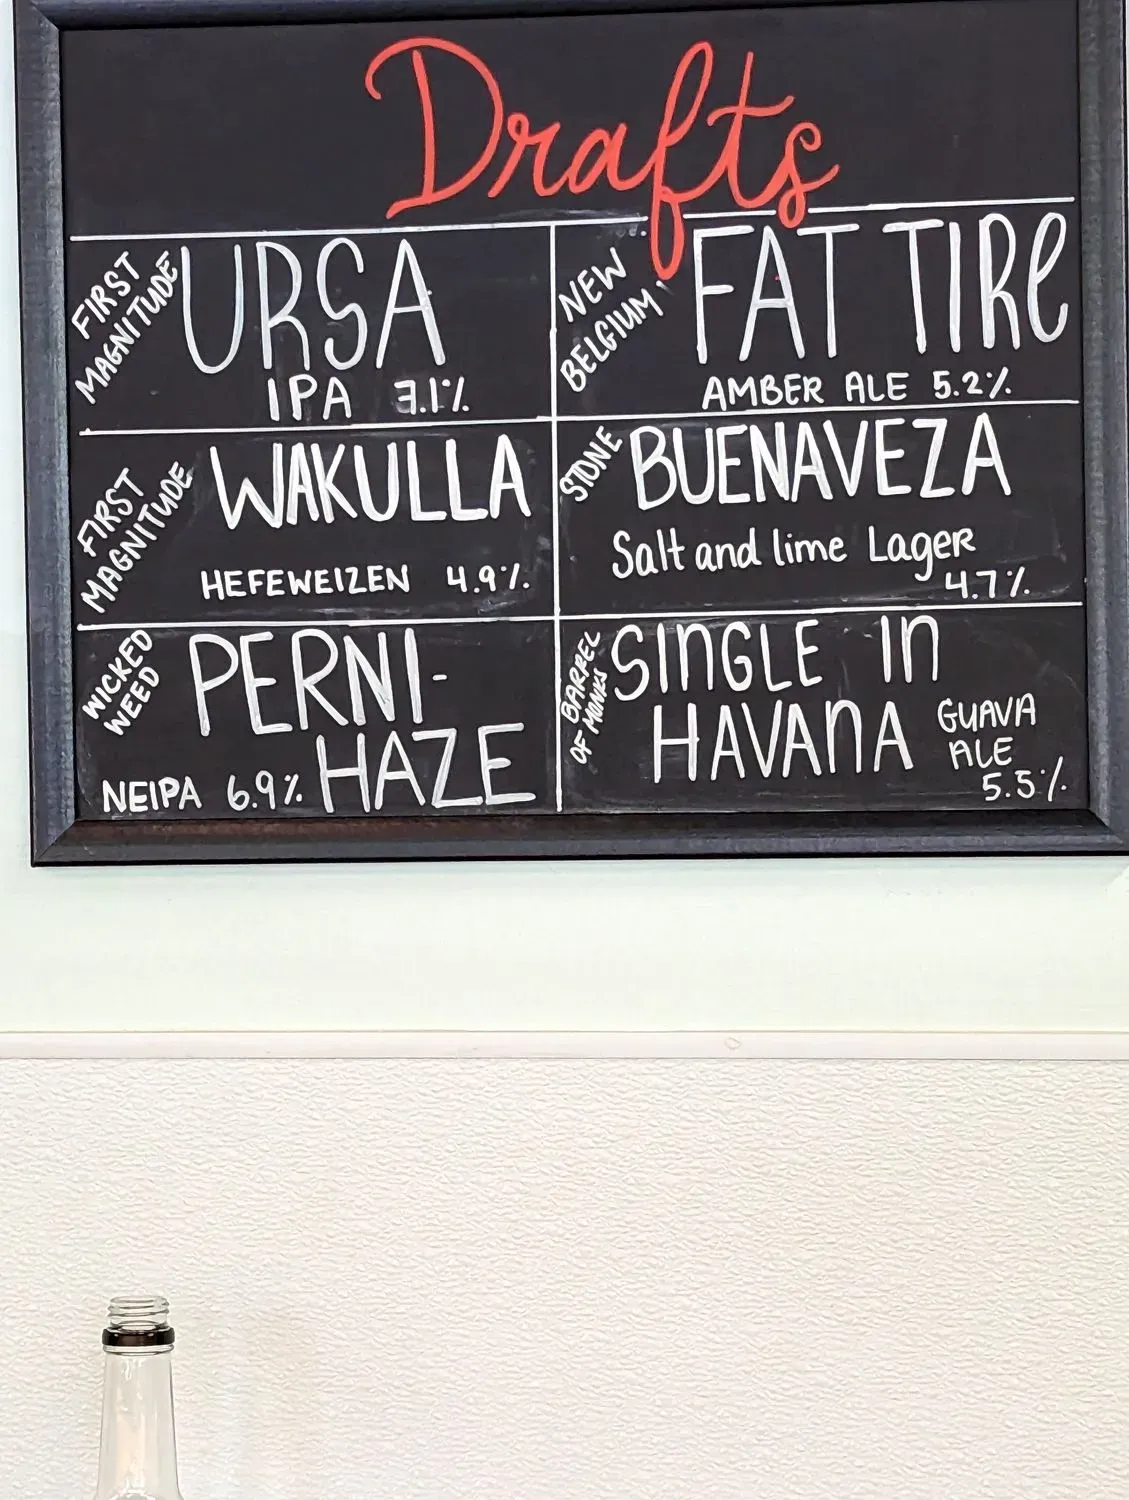 Drafts
FIRST
MAGNITUDE
URSA
IPA 7.1%
NEW
BELGIUM
FAT TIRE
AMBER ALE 5.2%
FIRST
MAGNITUDE
WAKULLA
HEFEWEIZEN 4.9%
STONE
BUENAVEZA
Salt and lime Lager
4.7%
WICKED
WEED
PERNI-
HAZE
NEIPA 6.9%
BARREL
OF MONKS
SINGLE IN
HAVANA
GUAVA
ALE
5.5%